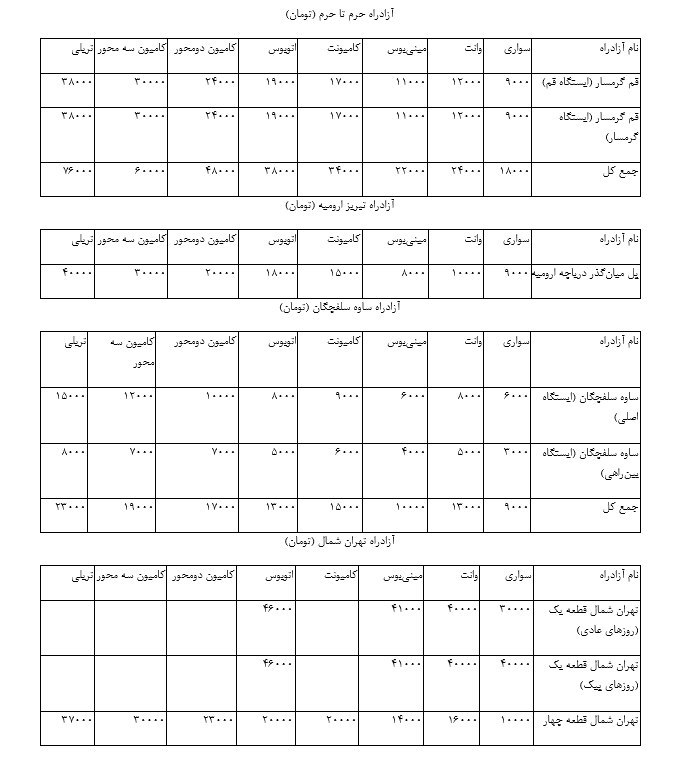 آزادراه حرم تا حرم (تومان)
نام آزادراه سواری وانت مینی‌بوس کامیونت اتوبوس کامیون دومحور کامیون سه محور تریلی
قم گرمسار (ایستگاه قم) ۹۰۰۰ ۱۲۰۰۰ ۱۱۰۰۰ ۱۷۰۰۰ ۱۹۰۰۰ ۲۴۰۰۰ ۳۰۰۰۰ ۳۸۰۰۰
قم گرمسار (ایستگاه ۹۰۰۰ ۱۲۰۰۰ ۱۱۰۰۰ ۱۷۰۰۰ ۱۹۰۰۰ ۲۴۰۰۰ ۳۰۰۰۰ ۳۸۰۰۰
گرمسار)
جمع کل ۱۸۰۰۰ ۲۴۰۰۰ ۲۲۰۰۰ ۳۴۰۰۰ ۳۸۰۰۰ ۴۸۰۰۰ ۶۰۰۰۰ ۷۶۰۰۰
آزادراه تبریز ارومیه (تومان)
نام آزادراه سواری وانت مینی‌بوس کامیونت اتوبوس کامیون دومحور کامیون سه محور تریلی
پل میان‌گذر دریاچه ارومیه ۹۰۰۰ ۱۰۰۰۰ ۸۰۰۰ ۱۵۰۰۰ ۱۸۰۰۰ ۲۰۰۰۰ ۳۰۰۰۰ ۴۰۰۰۰
آزادراه ساوه سلفچگان (تومان)
نام آزادراه سواری وانت مینی‌بوس کامیونت اتوبوس کامیون دومحور کامیون سه تریلی
محور
ساوه سلفچگان (ایستگاه ۶۰۰۰ ۸۰۰۰ ۶۰۰۰ ۹۰۰۰ ۸۰۰۰ ۱۰۰۰۰ ۱۲۰۰۰ ۱۵۰۰۰
اصلی)
ساوه سلفچگان (ایستگاه ۳۰۰۰ ۵۰۰۰ ۴۰۰۰ ۶۰۰۰ ۵۰۰۰ ۷۰۰۰ ۷۰۰۰ ۸۰۰۰
بین‌راهی)
جمع کل ۹۰۰۰ ۱۳۰۰۰ ۱۰۰۰۰ ۱۵۰۰۰ ۱۳۰۰۰ ۱۷۰۰۰ ۱۹۰۰۰ ۲۳۰۰۰
آزادراه تهران شمال (تومان)
نام آزادراه سواری وانت مینی‌بوس کامیونت اتوبوس کامیون دومحور کامیون سه محور تریلی
تهران شمال قطعه یک ۳۰۰۰۰ ۴۰۰۰۰ ۴۱۰۰۰ ۴۶۰۰۰
(روزهای عادی)
تهران شمال قطعه یک ۴۰۰۰۰ ۴۰۰۰۰ ۴۱۰۰۰ ۴۶۰۰۰
(روزهای پیک)
تهران شمال قطعه چهار ۱۰۰۰۰ ۱۶۰۰۰ ۱۴۰۰۰ ۲۰۰۰۰ ۲۰۰۰۰ ۲۳۰۰۰ ۳۰۰۰۰ ۳۷۰۰۰